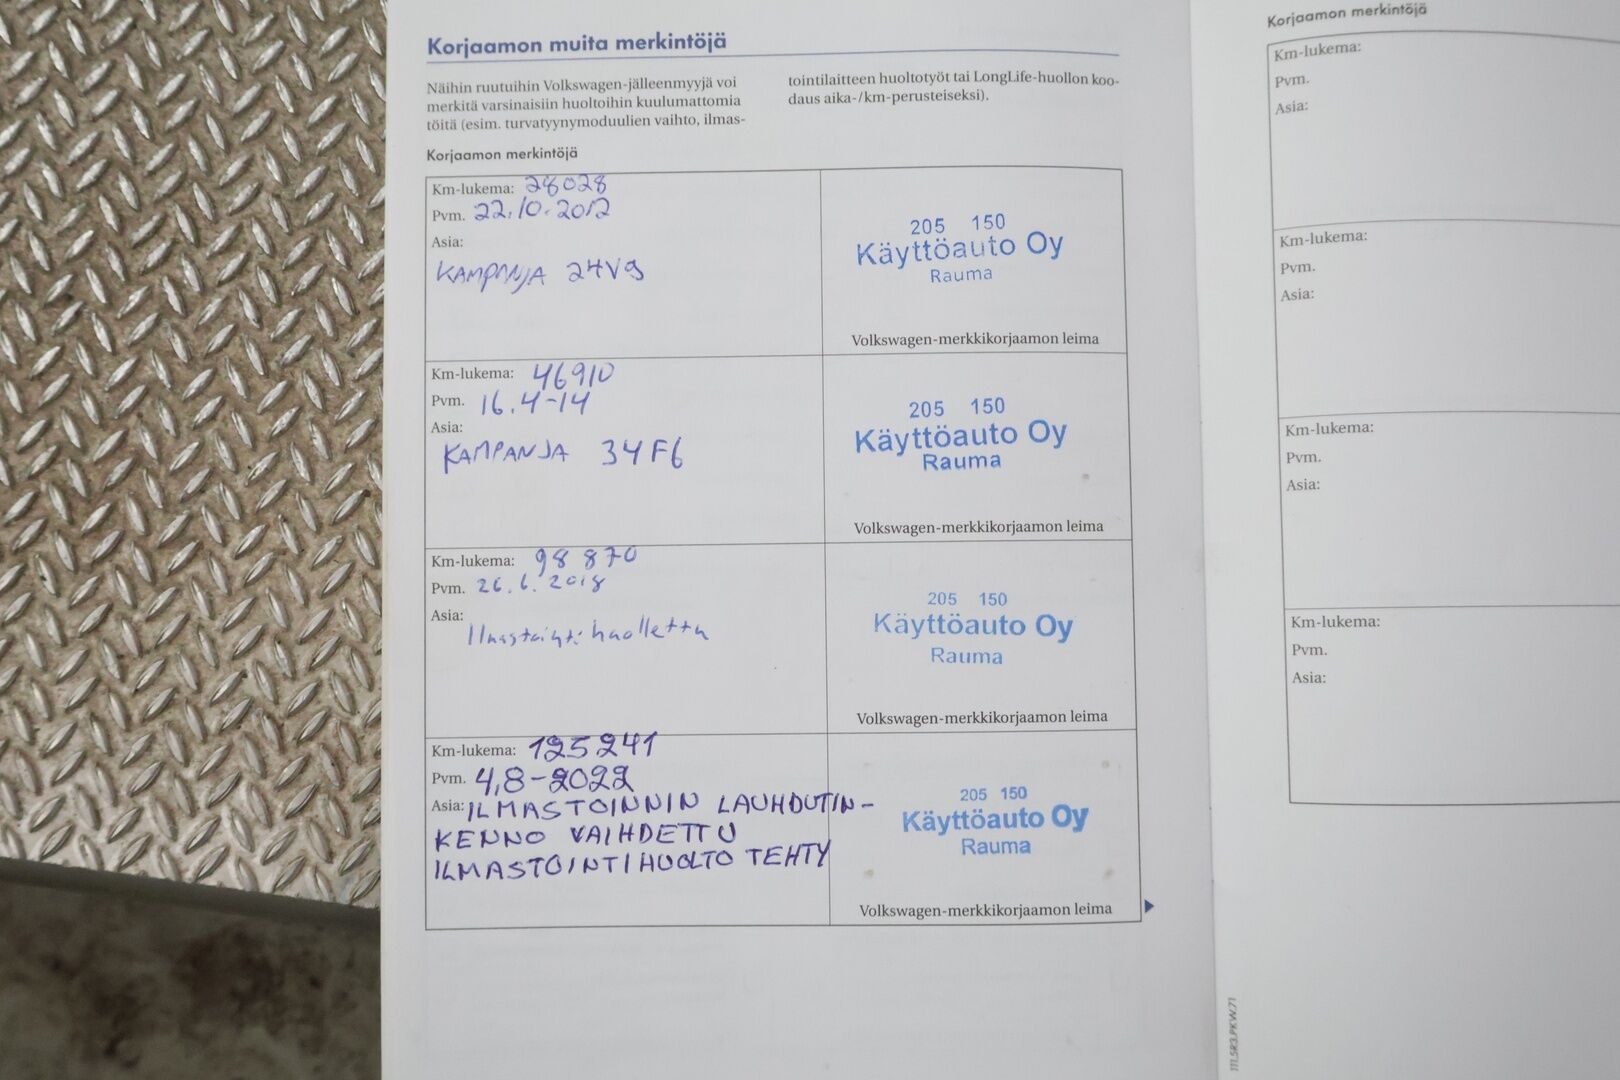 Korjaamon muita merkintöjä
Näihin ruutuihin Volkswagen-jälleenmyyjä voi
merkitä varsinaisiin huoltoihin kuulumattomia
töitä (esim. turvatyynymoduulien vaihto, ilmas-
tointilaitteen huoltotyöt tai LongLife-huollon koo-
daus aika-/km-perusteiseksi).
Korjaamon merkintöjä
Km-lukema: 28028
Pvm. 22.10.2012
Asia:
KAMPANJA 24V9
205 150
Käyttöauto Oy
Rauma
Volkswagen-merkkikorjaamon leima
Km-lukema: 46910
Pvm. 16.4-14
Asia:
KAMPANJA 34F6
205 150
Käyttöauto Oy
Rauma
Volkswagen-merkkikorjaamon leima
Km-lukema: 98 870
Pvm. 26.6.2018
Asia:
Ilmastointi huollettu
205 150
Käyttöauto Oy
Rauma
Volkswagen-merkkikorjaamon leima
Km-lukema: 125241
Pvm. 4,8-2022
Asia: ILMASTOINNIN LAUHDUTIN-
KENNO VAIHDETTU
ILMASTOINTIHUOLTO TEHTY
205 150
Käyttöauto Oy
Rauma
Volkswagen-merkkikorjaamon leima
Korjaamon merkintöjä
Km-lukema:
Pvm.
Asia:
Km-lukema:
Pvm.
Asia:
Km-lukema:
Pvm.
Asia:
Km-lukema:
Pvm.
Asia:
111.5R3.PKW.71